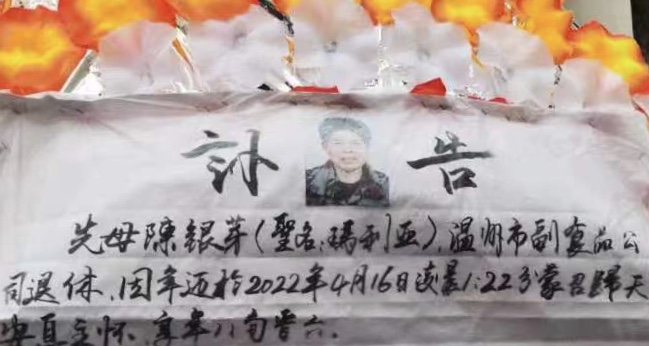 訃告
先母陳银芽(聖名:瑪利亚),温州市副食品公
司退休,因年迈於2022年4月16日凌晨1:22分蒙召歸天
安息主怀,享年八旬晋六.